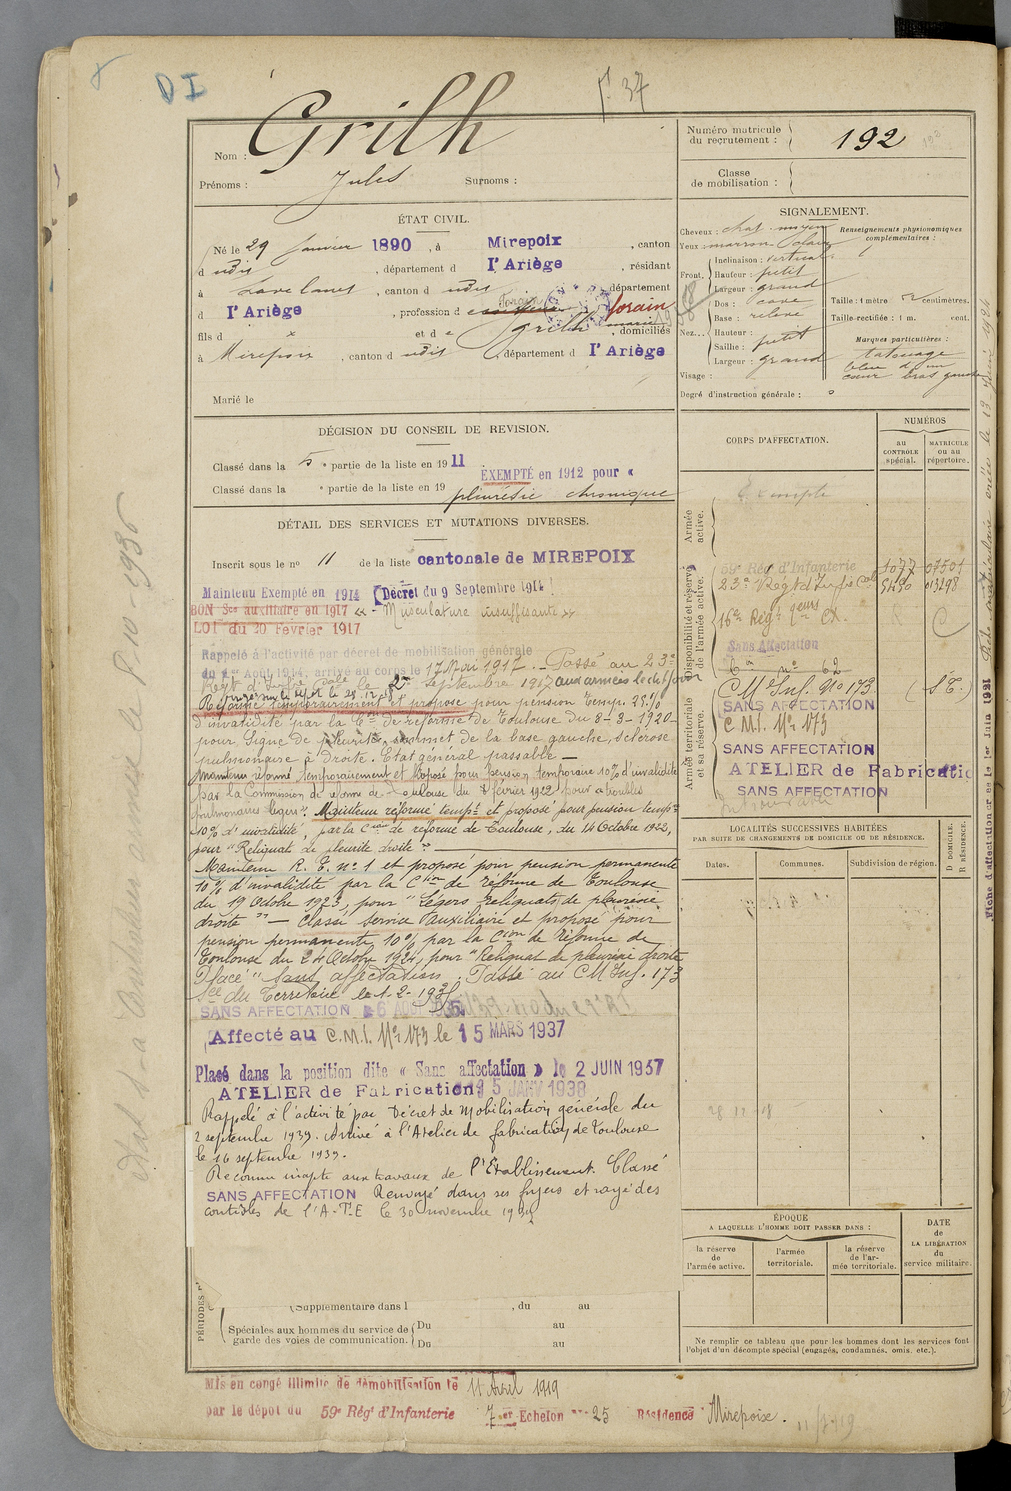 D I
f. 37
Nom : Grilh
Prénoms : Jules Surnoms :
Numéro matricule du recrutement : 192
Classe de mobilisation :
ÉTAT CIVIL.
Né le 29 Janvier 1890, à Mirepoix, canton
d udit, département d l'Ariège, résidant
à Lavelanet, canton d udit, département
d l'Ariège, profession d forain
fils d x et d e Grilh marie, domiciliés
à Mirepoix, canton d udit, département d l'Ariège
Marié le
SIGNALEMENT.
Cheveux : chat. moyen
Yeux : marron clair
Front. Inclinaison : vertical
Hauteur : petit
Largeur : grand
Nez. Dos : cave
Base : relevé
Hauteur :
Saillie : petit
Largeur : grand
Visage :
Renseignements physionomiques complémentaires :
Taille : 1 mètre centimètres.
Taille rectifiée : 1 m. cent.
Marques particulières :
tatouage
bleu d'un
cœur bras gauche
Degré d'instruction générale : 0
DÉCISION DU CONSEIL DE REVISION.
Classé dans la 5e partie de la liste en 1911
EXEMPTÉ en 1912 pour «
Classé dans la e partie de la liste en 19
pleurésie chronique
DÉTAIL DES SERVICES ET MUTATIONS DIVERSES.
Inscrit sous le no 11 de la liste cantonale de MIREPOIX
Maintenu Exempté en 1914 [Décret du 9 Septembre 1914]
BON Sce auxiliaire en 1917 « Musculature insuffisante »
LOI du 20 Février 1917
Rappelé à l'activité par décret de mobilisation générale
du 1er Août 1914, arrivé au corps le 17 Mai 1917. Passé au 23e
Régt d'Infie Cale le 2 septembre 1917 aux armées le dit jour
Réformé temporairement et proposé pour pension temp. 25%
d'invalidité par la Con de réforme de Toulouse du 8-3-1920
pour signe de pleurite, sommet de la base gauche, sclérose
pulmonaire à droite. Etat général passable —
Maintenu réformé temporairement et proposé pour pension temporaire 10% d'invalidité
par la Commission de réforme de Toulouse du février 1922 pour « troubles
pulmonaires légers ». Maintenu réformé tempre et proposé pour pension tempre
10% d'invalidité, par la Cion de réforme de Toulouse, du 14 Octobre 1922,
pour "Reliquat de pleurite droite" —
Maintenu R. T. no 1 et proposé pour pension permanente
10% d'invalidité par la Ction de réforme de Toulouse
du 19 Octobre 1923, pour "Légers reliquats de pleurésie
droite" — Classé Service Auxiliaire et proposé pour
pension permanente 10% par la Cion de Réforme de
Toulouse du 24 Octobre 1924, pour "Reliquat de pleurésie droite"
Placé "Sans affectation. Passé au C M Inf. 173
Sce du Territoire le 1-2-193
SANS AFFECTATION 6 AOUT 1935
Affecté au C.M.I. No 173 le 15 MARS 1937
Placé dans la position dite « Sans affectation » le 2 JUIN 1937
ATELIER de Fabrication 5 JANV 1938
Rappelé à l'activité par Décret de Mobilisation générale du
2 septembre 1939. Arrivé à l'Atelier de fabrication de Toulouse
le 16 septembre 1939.
Reconnu inapte aux travaux de l'Etablissement. Classé
SANS AFFECTATION Renvoyé dans ses foyers et rayé des
contrôles de l'A.T.E le 30 novembre 1939
PÉRIODES
(Supplémentaire dans l , du au
Spéciales aux hommes du service de garde des voies de communication.
Du au
Du au
CORPS D'AFFECTATION.
NUMÉROS
au CONTRÔLE spécial.
MATRICULE ou au répertoire.
Armée active.
Exempté
Disponibilité et réserve de l'armée active.
59e Rég d'Infanterie 1077 07501
23e Régt d'Infie Cole 5480 013298
16e Régt
Sans Affectation
Armée territoriale et sa réserve.
C M Inf. No 173
SANS AFFECTATION
C M I. No 173
SANS AFFECTATION
ATELIER de Fabrication
SANS AFFECTATION
LOCALITÉS SUCCESSIVES HABITÉES
PAR SUITE DE CHANGEMENTS DE DOMICILE OU DE RÉSIDENCE.
Dates. Communes. Subdivision de région.
D DOMICILE.
R RÉSIDENCE.
28 12 18
ÉPOQUE
A LAQUELLE L'HOMME DOIT PASSER DANS :
la réserve de l'armée active.
l'armée territoriale.
la réserve de l'armée territoriale.
DATE
de
LA LIBÉRATION
du
service militaire.
Ne remplir ce tableau que pour les hommes dont les services font
l'objet d'un décompte spécial (engagés, condamnés, omis, etc.).
Mis en congé illimité de démobilisation le 11 Avril 1919
par le dépôt du 59e Régt d'Infanterie 7 Echelon no 25 Résidence Mirepoix.
Fiche d'affectation créée le 1er Juin 1921